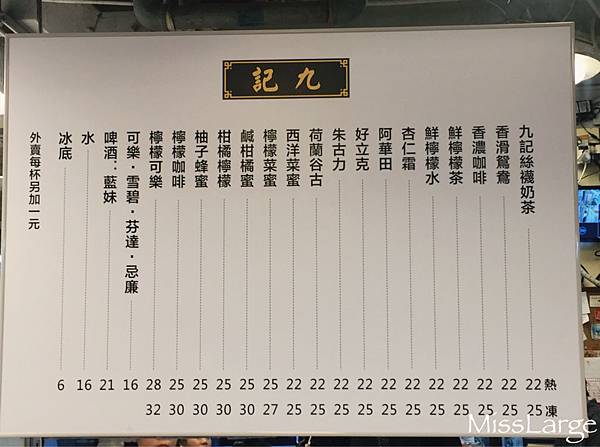 九記
熱 凍
九記絲襪奶茶 22 25
香滑鴛鴦 22 25
香濃咖啡 22 25
鮮檸檬茶 22 25
鮮檸檬水 22 25
杏仁霜 22 25
阿華田 22 25
好立克 22 25
朱古力 22 25
荷蘭谷古 22 25
西洋菜蜜 22 25
檸檬菜蜜 25 27
鹹柑橘蜜 25 30
柑橘檸檬 25 30
柚子蜂蜜 25 30
檸檬咖啡 25 30
檸檬可樂 28 32
可樂．雪碧．芬達．忌廉 16
啤酒：藍妹 21
水 16
冰底 6
外賣每杯另加一元
MissLarge